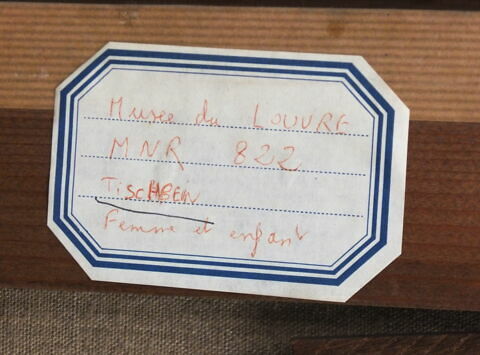 Musée du LOUVRE
MNR 822
TiSCHBEIN
Femme et enfant